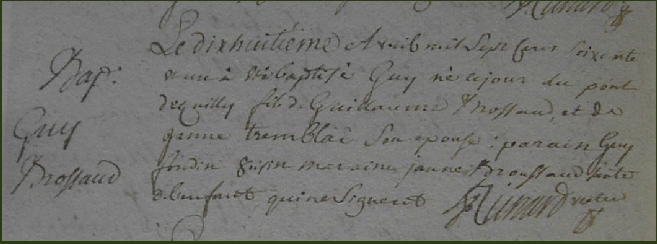 Bap.
Guy
Brossaud
Le dixhuitième Avril mil Sept Cens Soixente
et un a été baptisé Guy né ce jour du pont
de Guillaume Brossaud, et de
janne tremblaÿ Son epouse: parain Guy
maraine janne Broussaud tante
de l'enfant qui ne Signent